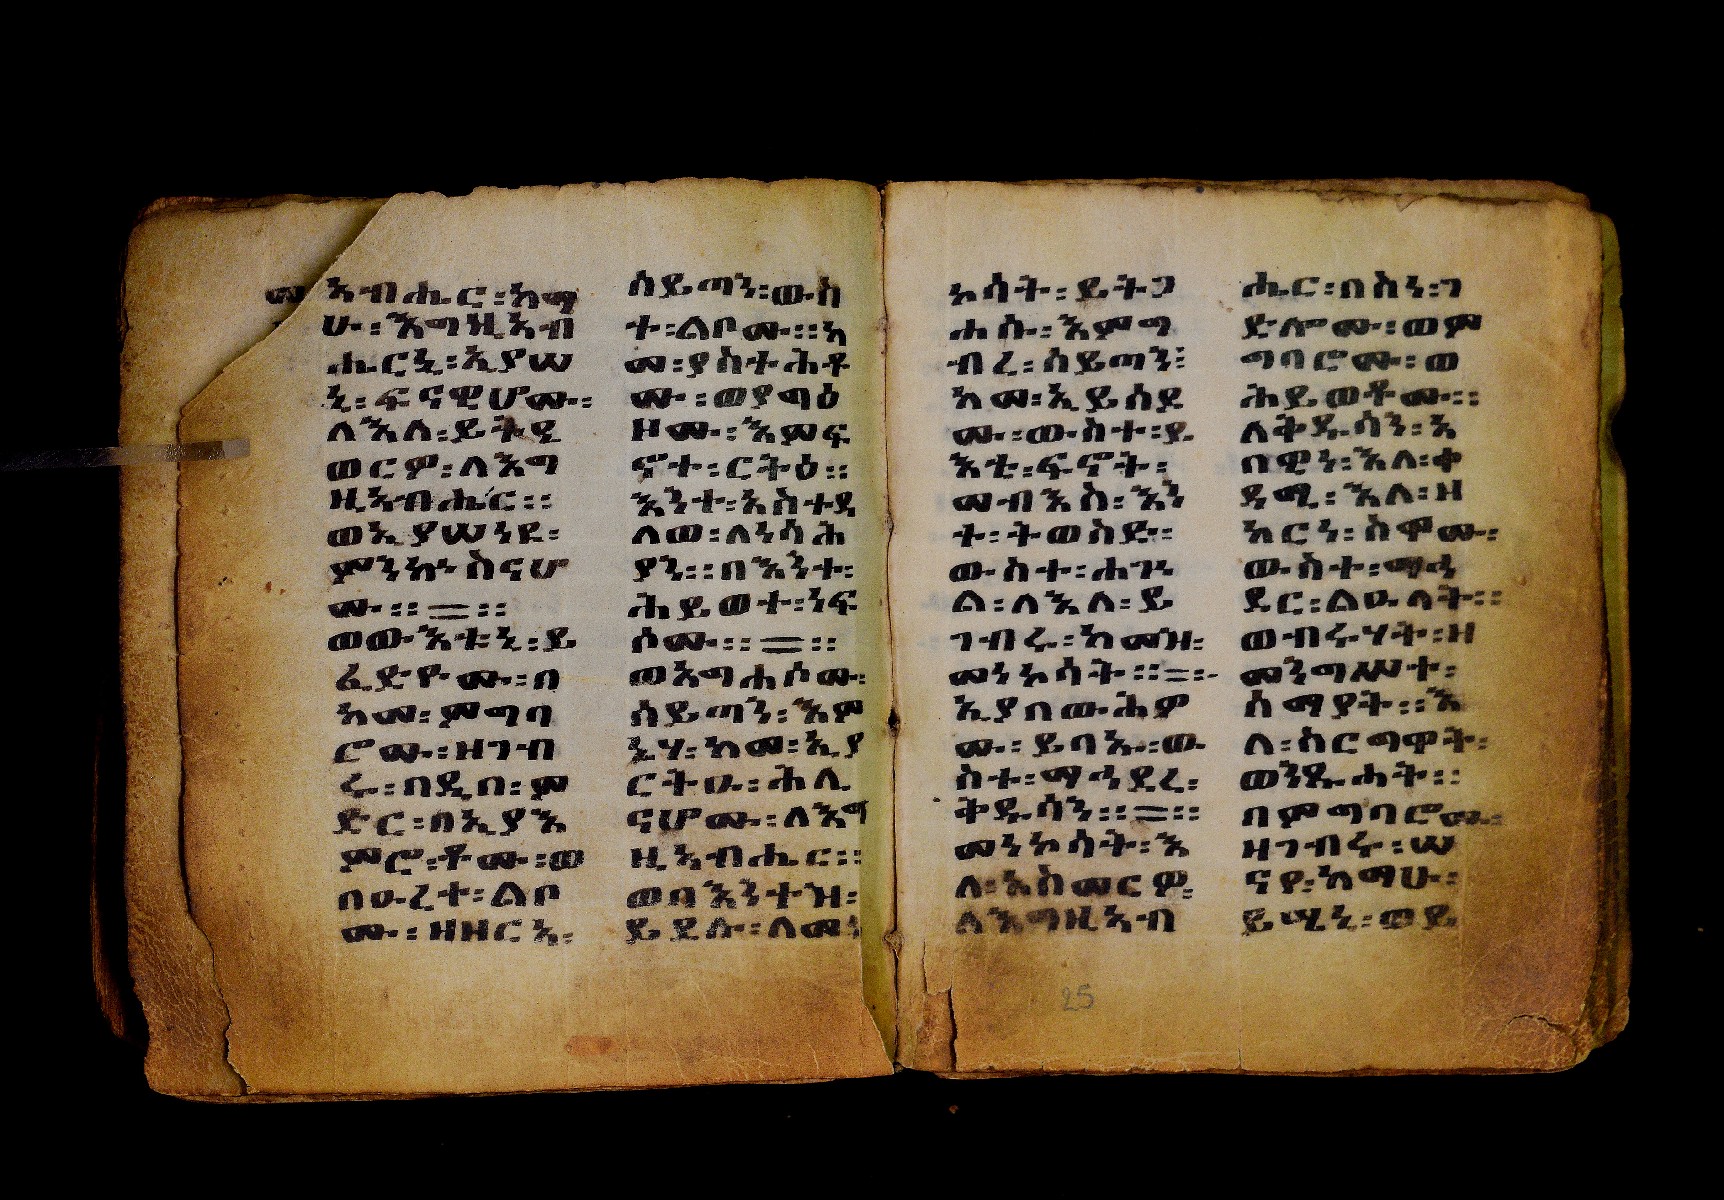 እብሔር፡አማ
ሁ፡እግዚእብ
ሔርኒ፡ኢያሠ
ኒ፡ፍናዊሆሙ፡
ለእለ፡ይትዔ
ወርዎ፡ለእግ
ዚእብሔር።
ወኢያሠነዩ፡
ምንኩስናሆ
ሙ።=።
ወውእቱኒ፡ይ
ፈድዮሙ፡በ
ከመ፡ምግባ
ሮሙ፡ዘገብ
ሩ፡በዲበ፡ም
ድር፡በኢያእ
ምሮ፡ቶሙ፡ወ
በዑረተ፡ልቦ
ሙ፡ዘዘርአ፡
ሰይጣን፡ውስ
ተ፡ልቦሙ።ከ
መ፡ያስተሕቶ
ሙ፡ወያግዕ
ዞሙ፡እምፍ
ኖተ፡ርትዕ።
እንተ፡አስተዳ
ለወ፡ለነሳሕ
ያን።በእንተ፡
ሕይወተ፡ነፍ
ሶሙ።=።
ወአግሐሶሙ፡
ሰይጣን፡እም
ኔሃ፡ከመ፡ኢያ
ርትዑ፡ሕሊ
ናሆሙ፡ለእግ
ዚእብሔር።
ወበእንተዝ፡
ይደሉ፡ለመነ
ኮሳት፡ይትጋ
ሐሱ፡እምግ
ብረ፡ሰይጣን፡
ከመ፡ኢይሰደ
ሙ፡ውስተ፡ዪ
እቲ፡ፍኖት፡
መብእስ፡እን
ተ፡ትወስድ፡
ውስተ፡ሐጉ
ል፡ለእለ፡ይ
ገብሩ፡ከመዝ፡
መነኮሳት።=።
ኢያበውሕዎ
ሙ፡ይባኡ፡ው
ስተ፡ማኅደረ፡
ቅዱሳን።=።
መነኮሳት፡እ
ለ፡አስመርዎ፡
ለእግዚአብ
ሔር፡በስነ፡ገ
ድሎሙ፡ወም
ግባሮሙ፡ወ
ሕይወቶሙ።
ለቅዱሳን፡አ
በዊነ፡እለ፡ቀ
ዳሚ፡እለ፡ዘ
አርነ፡ስሞሙ፡
ውስተ፡ማኅ
ደር፡ልዑላት።
ወብሩሃት፡ዘ
መንግሥተ፡
ሰማያት።እ
ለ፡ስርግዋት፡
ወንጹሓት።
በምግባሮሙ፡
ዘገብሩ፡ሠ
ናየ፡ከማሁ፡
ይሤኒ፡ወይ
25